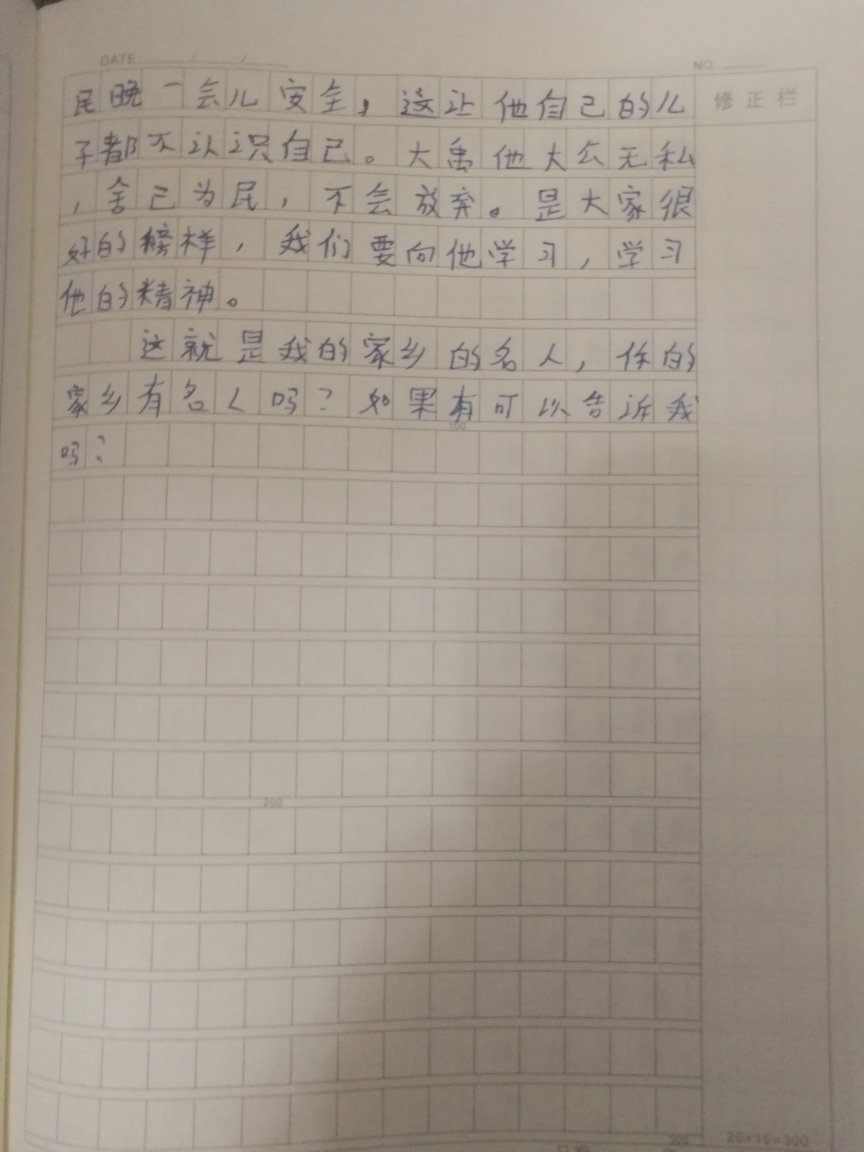 DATE / /
NO
修正栏
民晚一会儿安全，这让他自己的儿
子都不认识自己。大禹他大公无私
，舍己为民，不会放弃。是大家很
好的榜样，我们要向他学习，学习
他的精神。
这就是我的家乡的名人，你的
家乡有名人吗？如果有可以告诉我
100
吗？
200
300
20×15=300